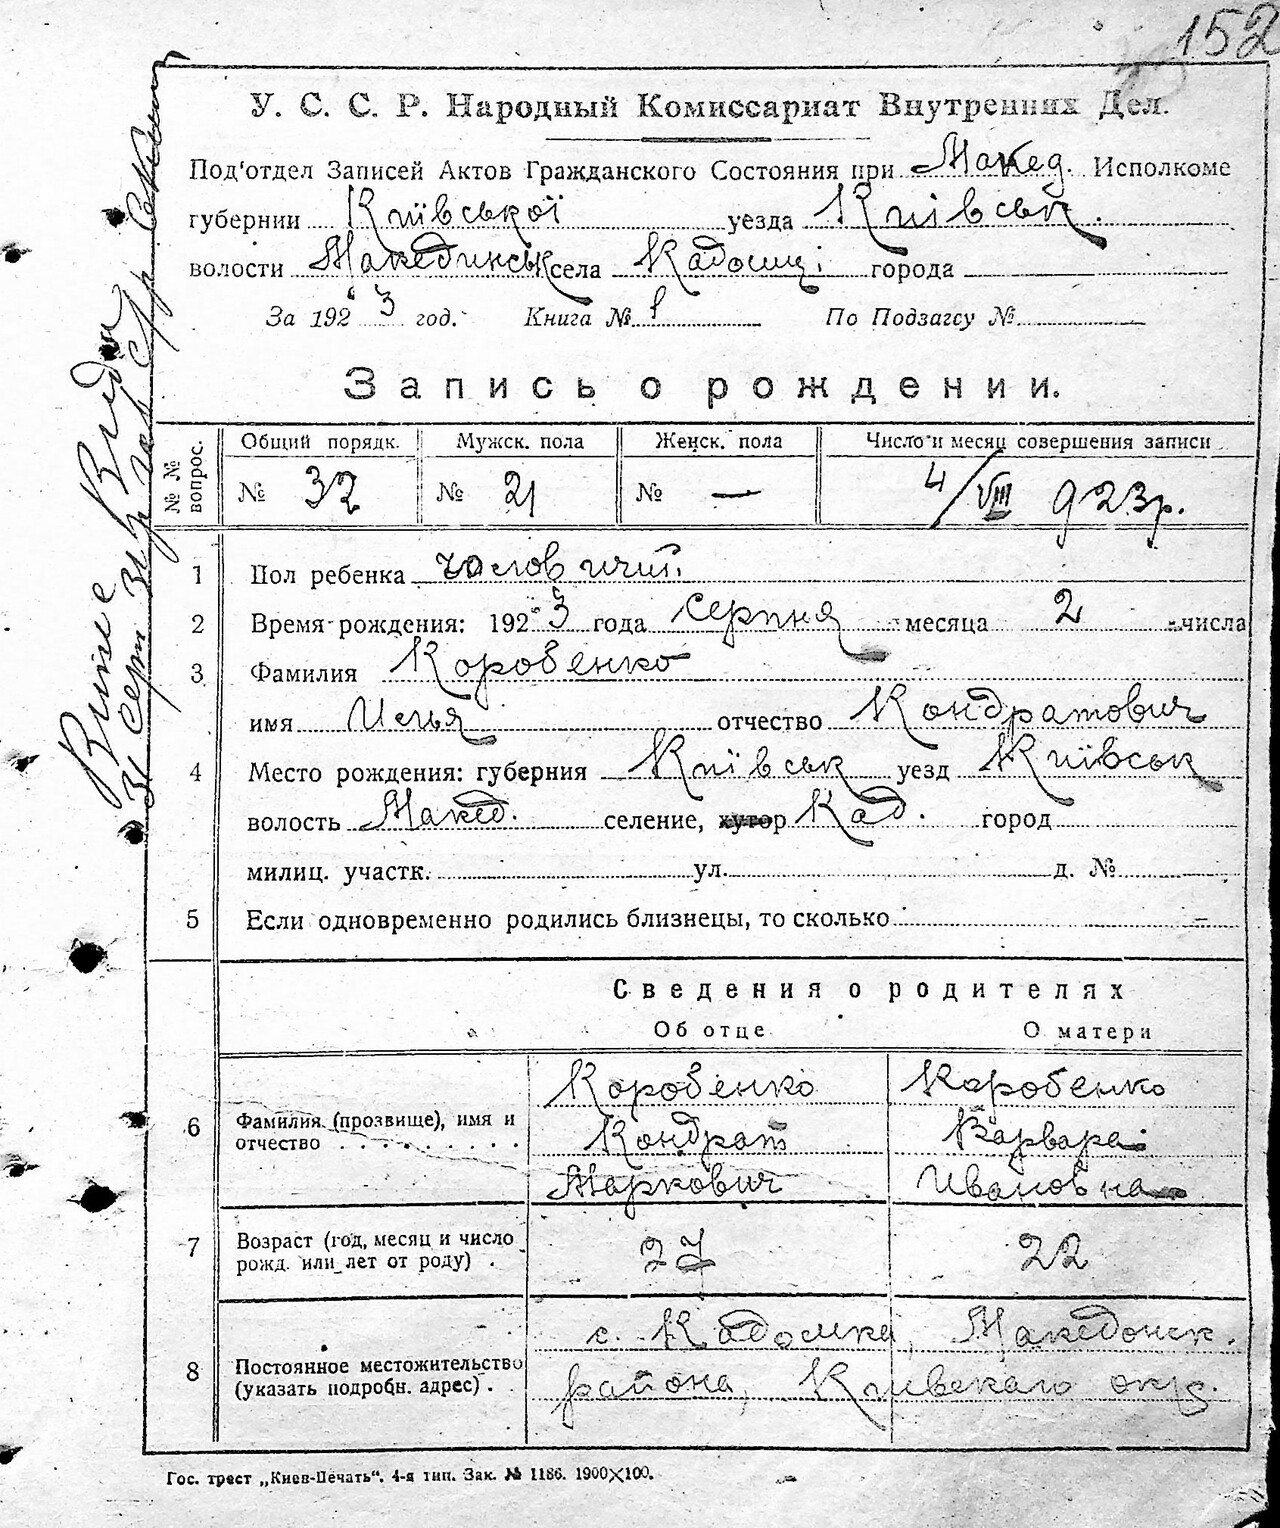 152
У. С. С. Р. Народный Комиссариат Внутренних Дел.
Под'отдел Записей Актов Гражданского Состояния при Макед. Исполкоме
губернии Київської уезда Київськ.
волости Макединськ села Кадомці города
За 1923 год. Книга № 1 По Подзагсу №
Запись о рождении.
№ № вопрос.
Общий порядк. Мужск. пола Женск. пола Число и месяц совершения записи
№ 32 № 21 № — 4/VIII 923р.
1 Пол ребенка чоловичий
2 Время рождения: 1923 года серпня месяца 2 числа
3 Фамилия Коробенко
имя Илья отчество Кондратович
4 Место рождения: губерния Київськ уезд Київськ
волость Макед. селение, хутор Кад. город
милиц. участк. ул. д. №
5 Если одновременно родились близнецы, то сколько –
Сведения о родителях
Об отце О матери
6 Фамилия (прозвище), имя и отчество
Коробенко Коробенко
Кондрат Варвара
Маркович Ивановна
7 Возраст (год, месяц и число рожд. или лет от роду) . 27 22
8 Постоянное местожительство (указать подробн. адрес) .
с. Кадомка, Македонск.
района, Киевскаго окр.
Гос. трест „Киев-Печать“. 4-я тип. Зак. № 1186. 1900×100.